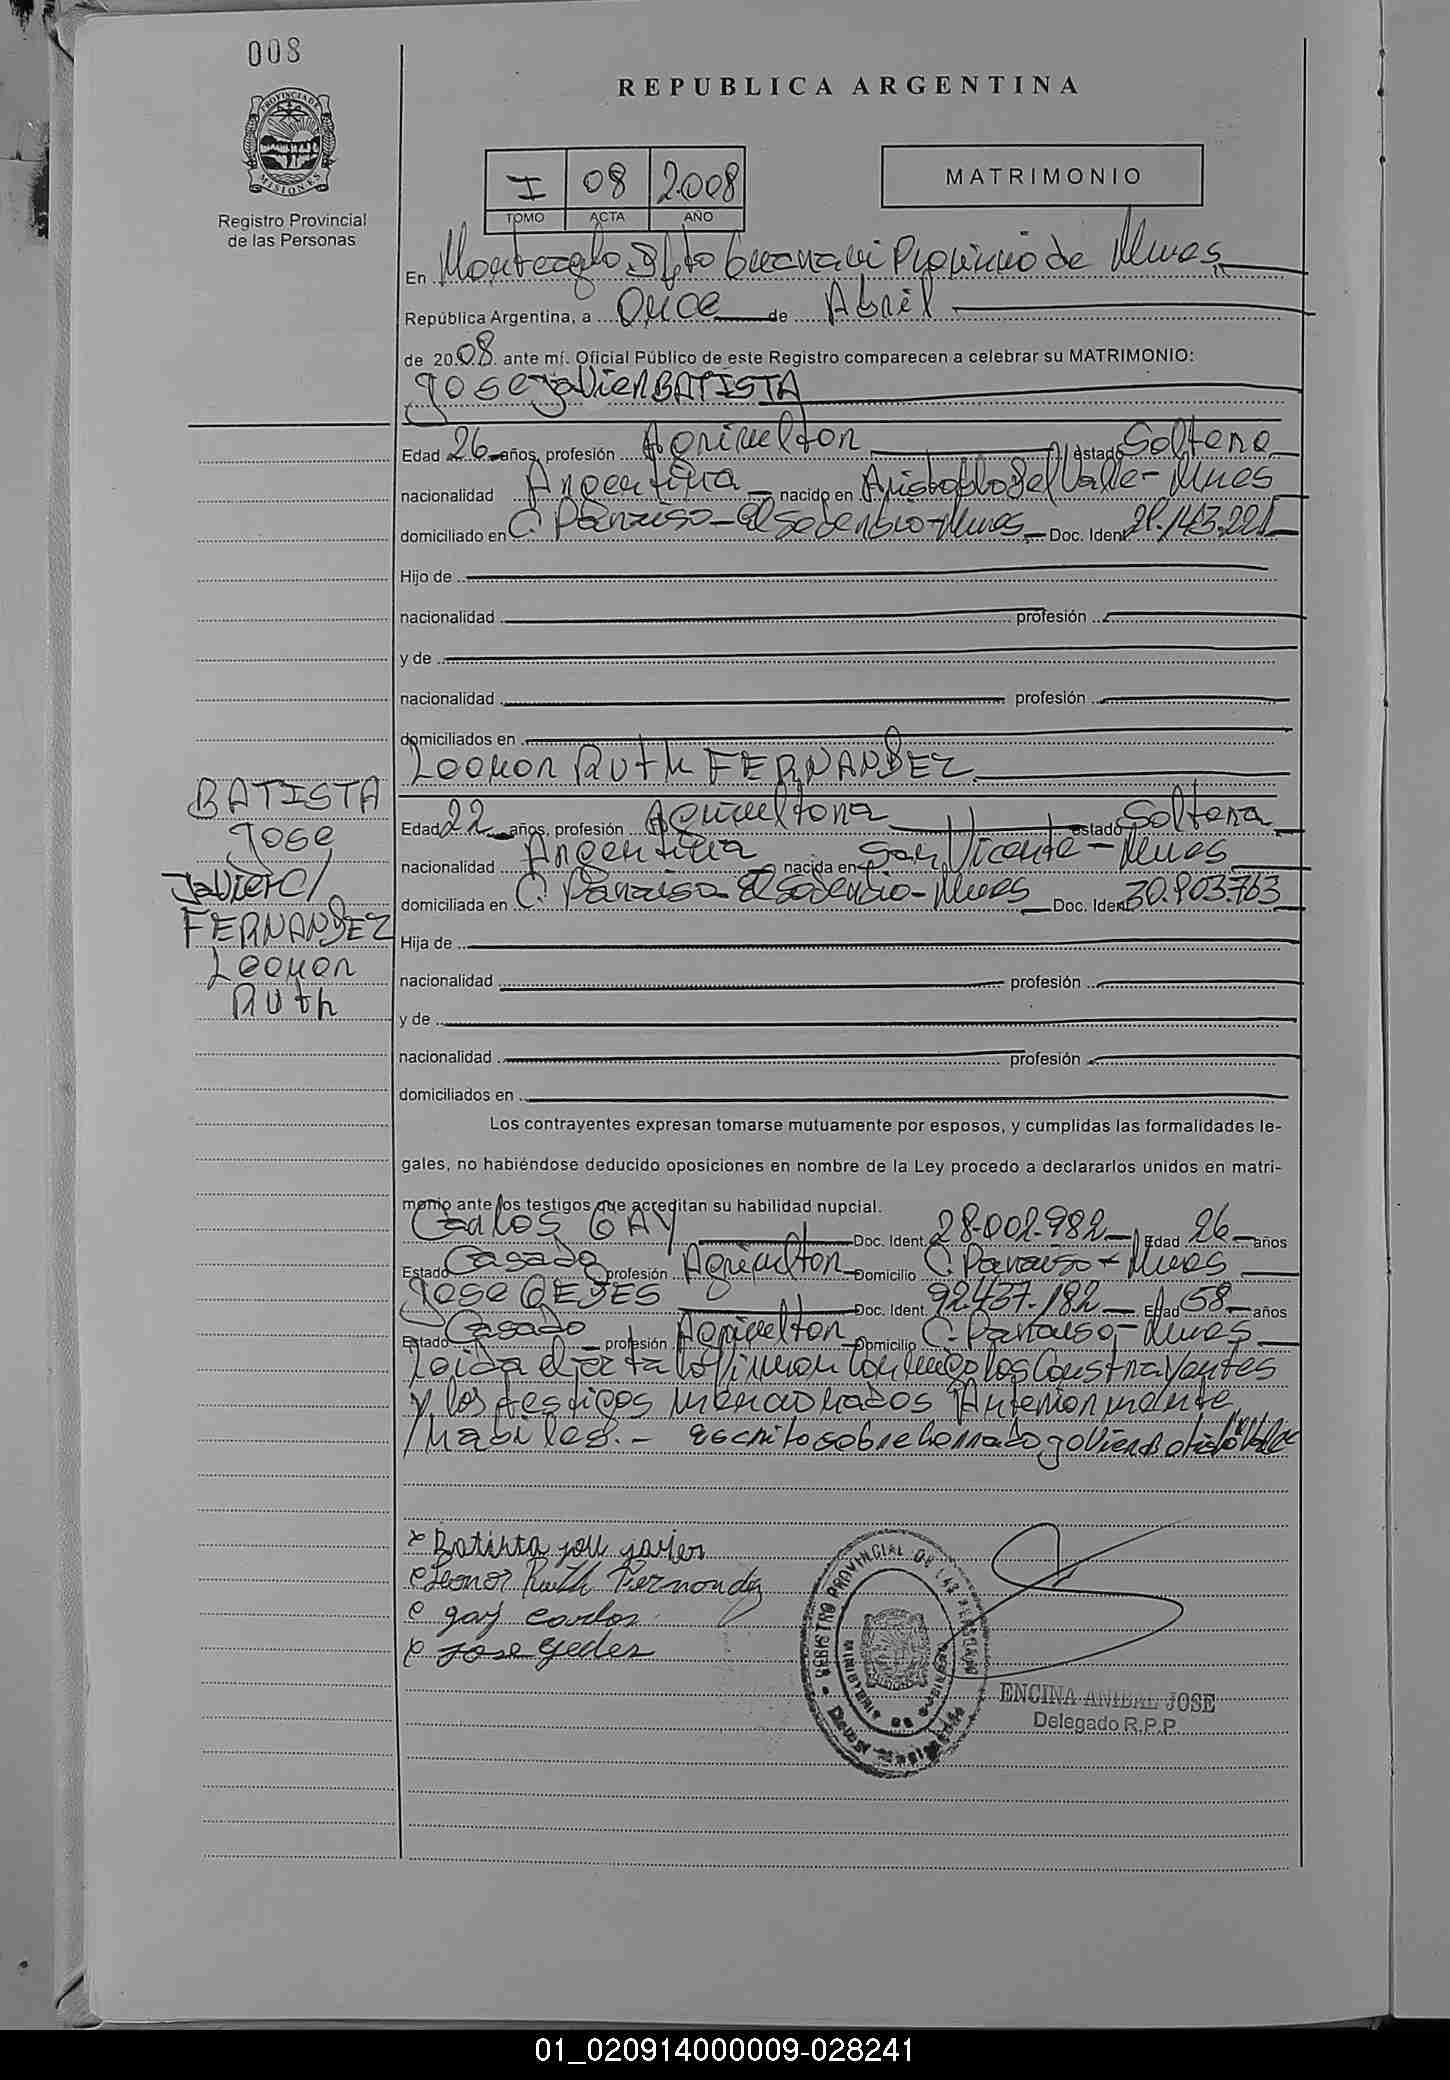 008
REPUBLICA ARGENTINA
PROVINCIA DE MISIONES
Registro Provincial
de las Personas
I 08 2.008
TOMO ACTA AÑO
MATRIMONIO
En Monteagudo Dpto Guarani Provincia de Mnes
República Argentina, a Once de Abril
de 2008. ante mí. Oficial Público de este Registro comparecen a celebrar su MATRIMONIO:
Jose Javier BATISTA
Edad 26 años, profesión Agricultor estado Soltero
nacionalidad Argentina nacido en Aristobulo Del Valle - Mnes
domiciliado en C. Paraiso - El Soberbio - Mnes Doc. Ident 29.143.221
Hijo de
nacionalidad profesión
y de
nacionalidad profesión
domiciliados en
Leonor Ruth FERNANDEZ
BATISTA
Jose
Javier C/
FERNANDEZ
Leonor
Ruth
Edad 22 años, profesión Agricultora estado Soltera
nacionalidad Argentina nacida en San Vicente - Mnes
domiciliada en C. Paraiso - El Soberbio - Mnes Doc. Ident 30.903.763
Hija de
nacionalidad profesión
y de
nacionalidad profesión
domiciliados en
Los contrayentes expresan tomarse mutuamente por esposos, y cumplidas las formalidades le-
gales, no habiéndose deducido oposiciones en nombre de la Ley procedo a declararlos unidos en matri-
monio ante los testigos que acreditan su habilidad nupcial.
Carlos GAY Doc. Ident. 28.002.982 Edad 26 años
Estado Casado profesión Agricultor Domicilio C. Paraiso - Mnes
Jose Doc. Ident. 92.437.182 Edad 58 años
Estado Casado profesión Agricultor Domicilio C. Paraiso - Mnes
Leida el acta lo firman conmigo los Constrayentes
y los testigos mencionados Anteriormente
Habiles. - Escrito sobre borrado
x Batista José javier
Leonor Ruth Fernandez
gay carlos
Jose
REGISTRO PROVINCIAL DE LAS PERSONAS
MINISTERIO DE GOBIERNO
ENCINA ANIBAL JOSE
Delegado R.P.P.
01_020914000009-028241